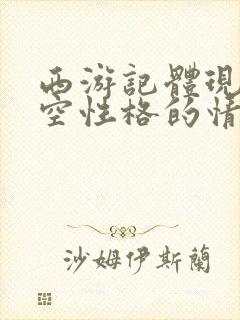 西游記體現
空性格的情
沙姆伊斯蘭